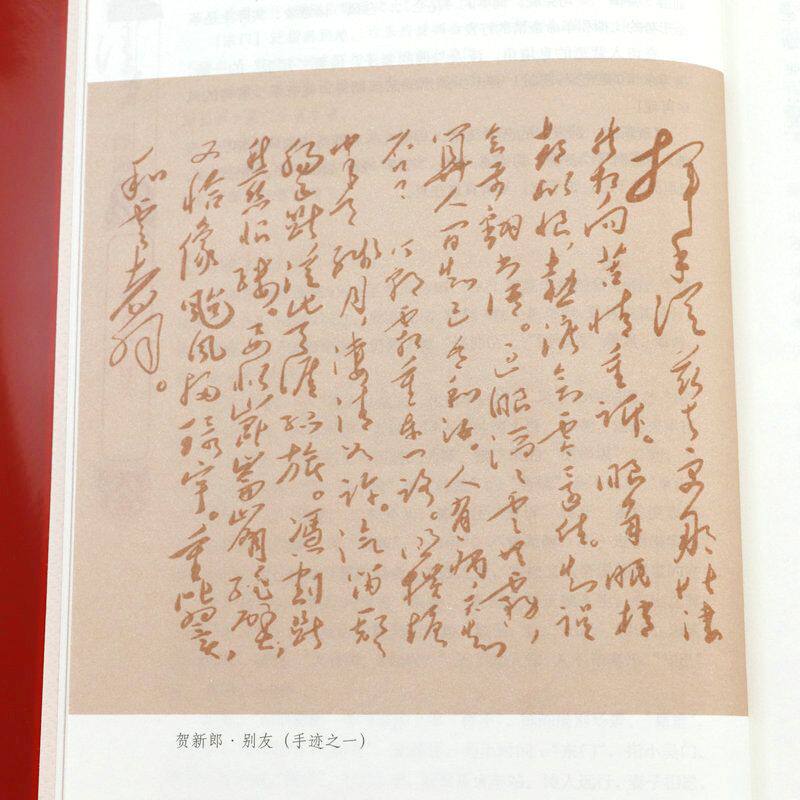 挥手从兹去更那堪凄
然相向苦情重诉。眼角眉梢
都似恨,热泪欲零还住。知误
会前翻书语。过眼滔滔云共雾,
算人间知己吾和汝。人有病,天知
否? 今朝霜重东门路。照横塘
半天残月,凄清如许。汽笛一声
肠已断,从此天涯孤旅。凭割断
愁丝恨缕。要似昆仑崩绝壁,
又恰像颱风扫寰宇。重比翼,
和云翥。
贺新郎·别友(手迹之一)